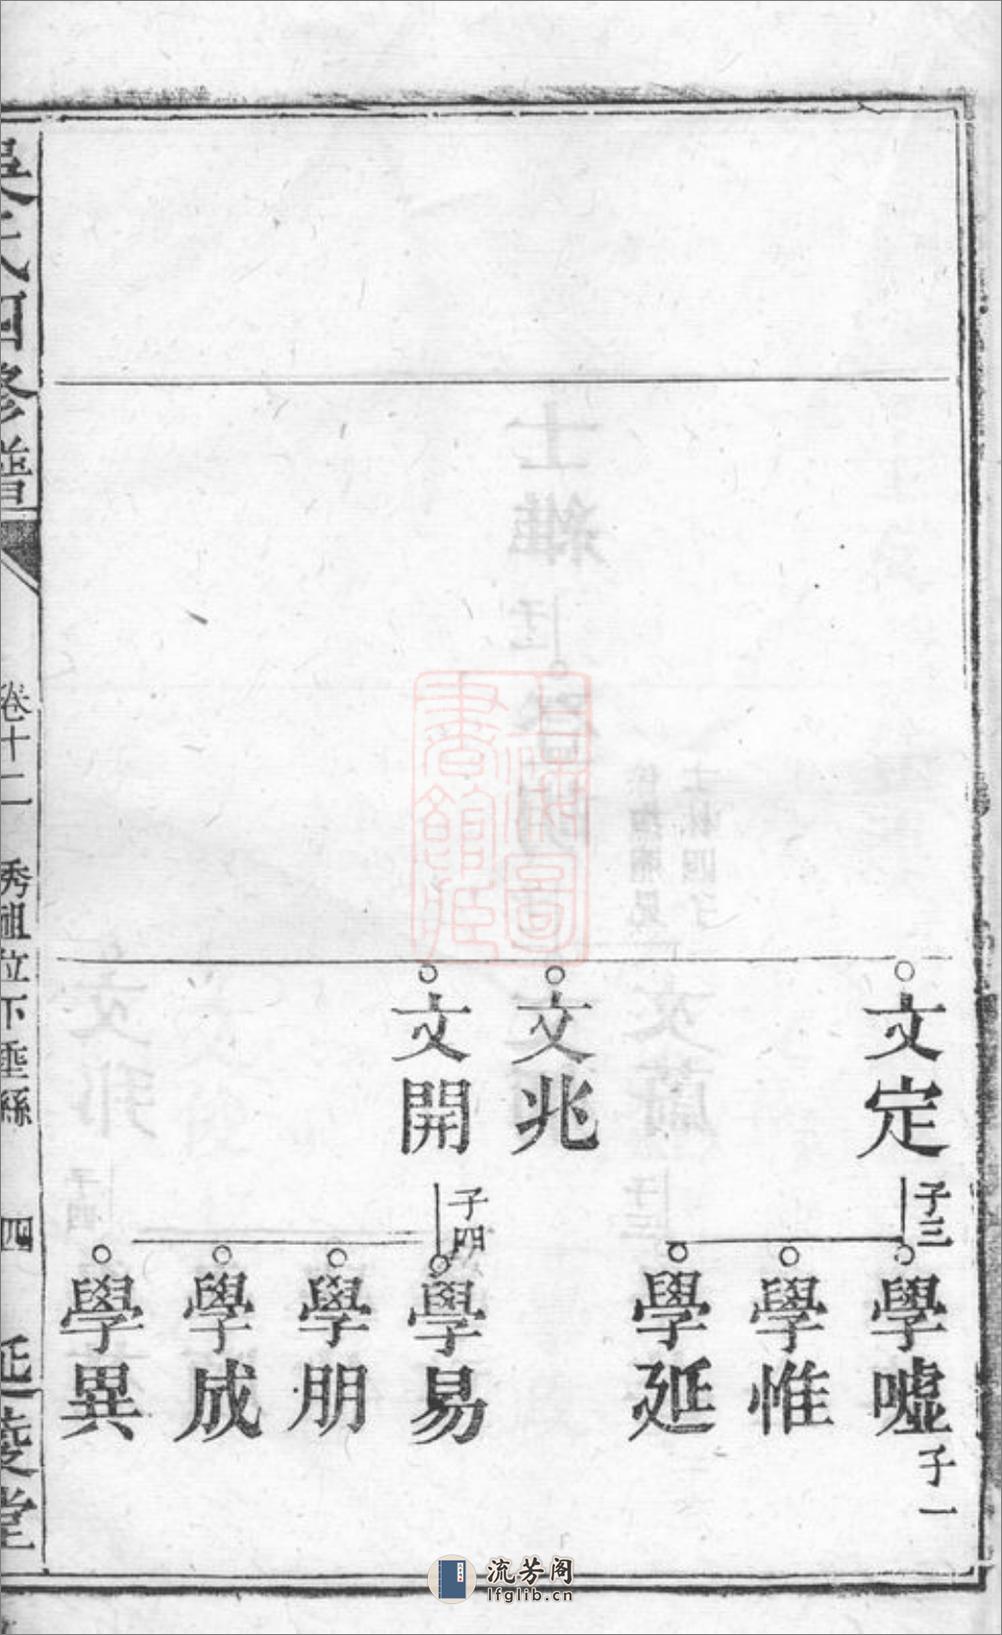 文定
子三
學噓
子一
學惟
學延
文兆
文開
子四
學易
學朋
學成
學異
吳氏四修譜
卷十二
秀祖位下垂絲
四
延陵堂
流芳阁
lfglib.cn